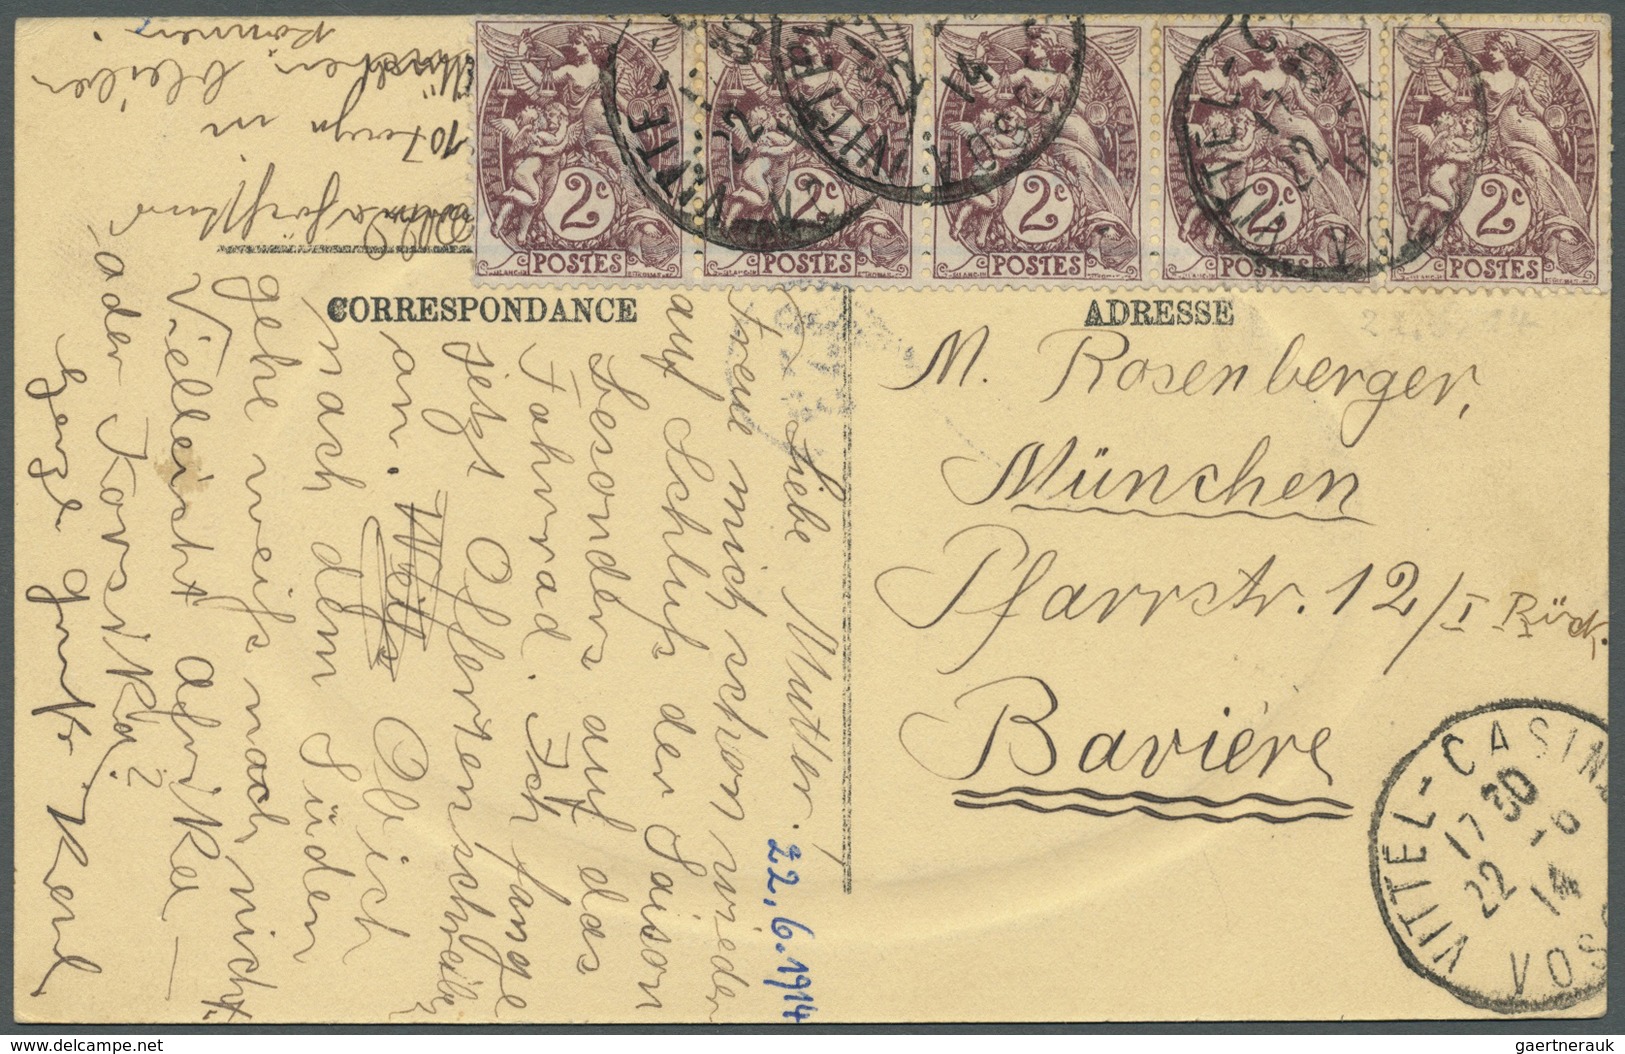 2c
POSTES
2c
POSTES
2c
POSTES
2c
POSTES
2c
POSTES
CORRESPONDANCE
ADRESSE
M. Rosenberger,
München
Pfarrstr. 12/I Rück.
Bavière
VITTEL-CASIN
17 30
22 -6
14
VOS
22.6.1914
Liebe Mutter.
Freue mich schon wieder
auf Schluß der Saison
besonders auf das
Fahrrad. Ich fange
jetzt Offertenschreiben
an. Ob ich
nach dem Süden
gehe weiß noch nicht.
Vielleicht Afrika –
oder Korsika?
Karl
10 in
München bleiben
können
gaertnerauk
www.delcampe.net